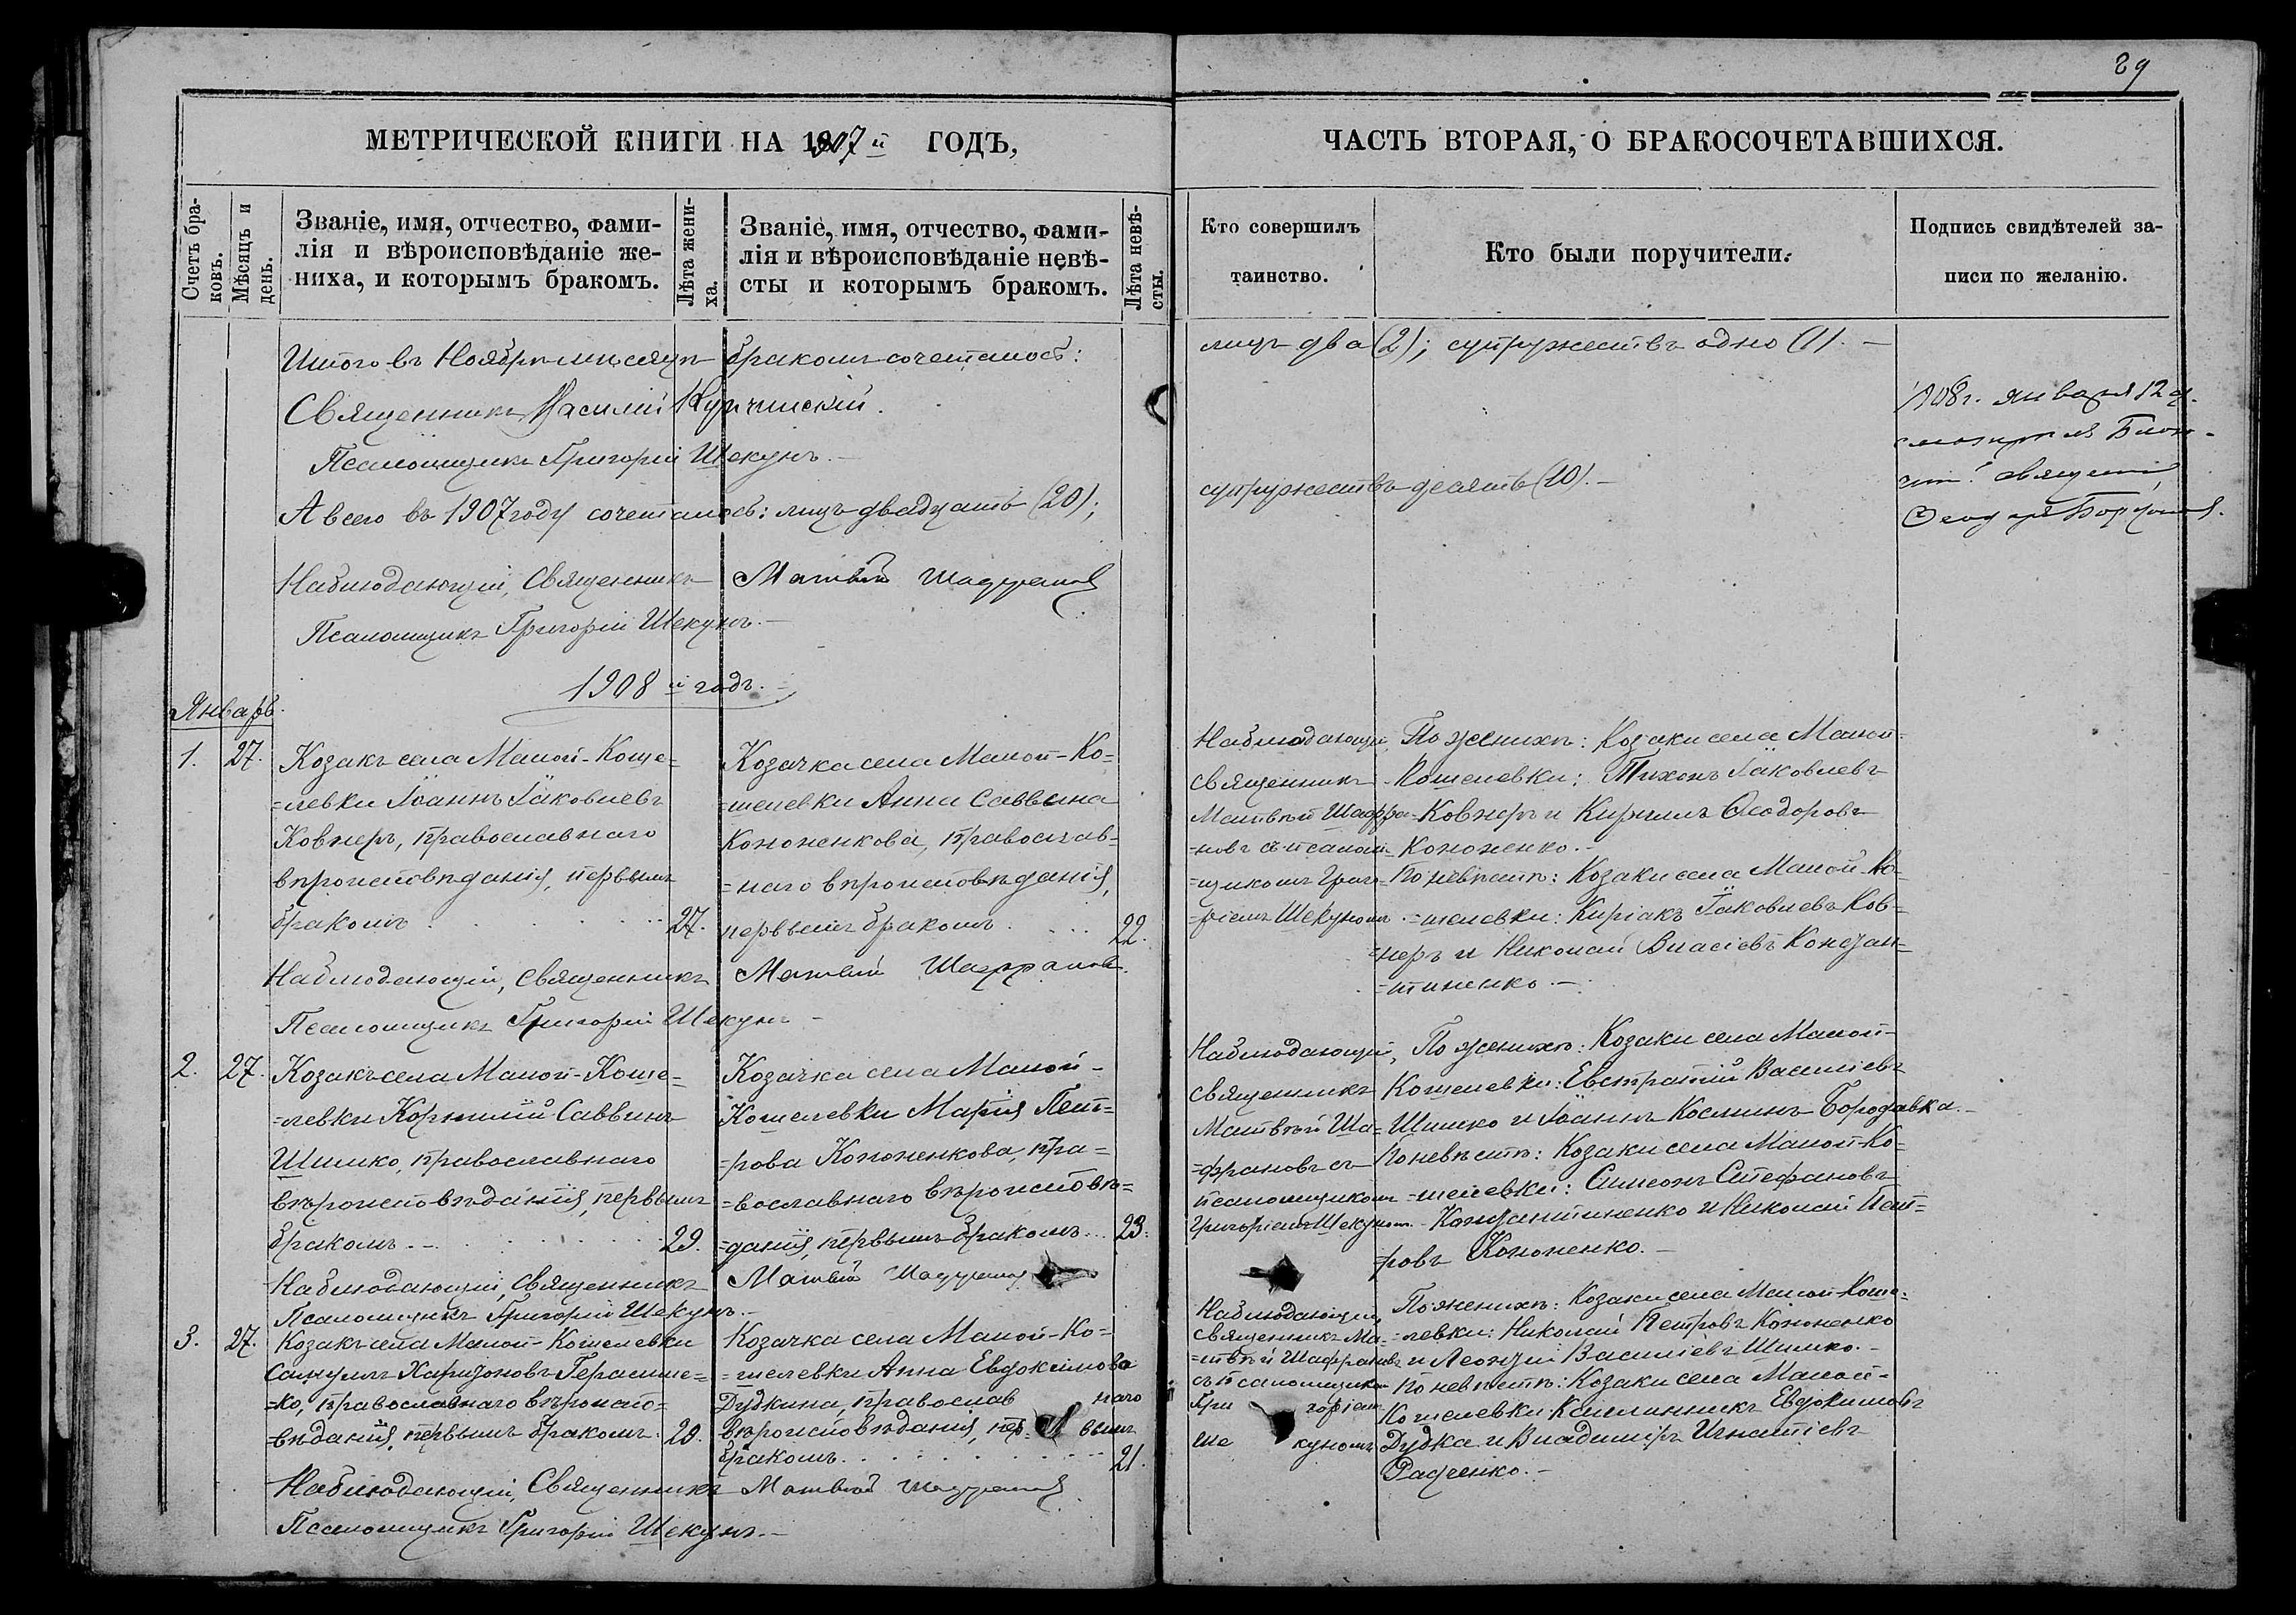 89
МЕТРИЧЕСКОЙ КНИГИ НА 1907й ГОДЪ,
ЧАСТЬ ВТОРАЯ, О БРАКОСОЧЕТАВШИХСЯ.
Счетъ бра-
ковъ.
Мѣсяцъ и
день.
Званіе, имя, отчество, фами-
лія и вѣроисповѣданіе же-
ниха, и которымъ бракомъ.
Лѣта жени-
ха.
Званіе, имя, отчество, фами-
лія и вѣроисповѣданіе невѣ-
сты и которымъ бракомъ.
Лѣта невѣ-
сты.
Кто совершилъ
таинство.
Кто были поручители.
Подпись свидѣтелей за-
писи по желанію.
Итого въ Ноябрѣ мѣсяцѣ бракомъ сочеталось:
лицъ два (2); супружествъ одно (1).
Священникъ Василій Купчинскій.
Псаломщикъ Григорій Шекунъ.
А всего въ 1907 году сочеталось: лицъ двадцать (20);
супружествъ десять (10).
1908 г. января 12 д.
Наблюдающій, Священникъ Матвѣй Шафрановъ
Псаломщикъ Григорій Шекунъ.
1908й годъ.
Январь.
1. 27.
Козакъ села Малой-Коше=
=левки Іоаннъ Іаковлевъ
Ковнеръ, православнаго
вѣроисповѣданія, первымъ
бракомъ 27.
Козачка села Малой-Ко=
=шелевки Анна Саввина
Кононенкова, православ=
=наго вѣроисповѣданія,
первымъ бракомъ 22.
Наблюдающій,
священникъ
Матвѣй Шафра=
=новъ съ псалом=
=щикомъ Григо=
=ріемъ Шекуномъ.
По женихѣ: Козаки села Малой-
Кошелевки: Тихонъ Іаковлевъ
Ковнеръ и Кириллъ Ѳеодоровъ
Кононенко.
По невѣстѣ: Козаки села Малой-Ко=
=шелевки: Киріакъ Іаковлевъ Ков=
=неръ и Николай Власіевъ Констан=
=тиненко.
Наблюдающій, Священникъ Матвѣй Шафрановъ
Псаломщикъ Григорій Шекунъ
2. 27.
Козакъ села Малой-Коше=
=левки Корнилій Саввинъ
Шишко, православнаго
вѣроисповѣданія, первымъ
бракомъ. 29.
Козачка села Малой-
Кошелевки Марія Пет=
=рова Кононенкова, пра=
=вославнаго вѣроисповѣ=
=данія, первымъ бракомъ 23.
Наблюдающій,
священникъ
Матвѣй Ша=
=франовъ съ
псаломщикомъ
Григоріемъ Шекуномъ.
По женихѣ: Козаки села Малой-
Кошелевки: Евстратій Василіевъ
Шишко и Іоаннъ Косминъ Бородавка.
По невѣстѣ: Козаки села Малой-Ко=
=шелевки: Симеонъ Стефановъ
Константиненко и Николай Пет=
=ровъ Кононенко.
Наблюдающій, Священникъ Матвѣй Шафрановъ
Псаломщикъ Григорій Шекунъ.
3. 27.
Козакъ села Малой-Кошелевки
Самуилъ Харитоновъ Герасиме=
=ко, православнаго вѣроиспо=
=вѣданія, первымъ бракомъ. 20.
Козачка села Малой-Ко=
=шелевки Анна Евдокимова
Дудкина, православнаго
вѣроисповѣданія, первымъ
бракомъ. 21.
Наблюдающій,
священникъ Ма=
=твѣй Шафрановъ
съ псаломщикомъ
Григоріемъ
Шекуномъ
По женихѣ: Козаки села Малой-Коше=
=левки: Николай Петровъ Кононенко
и Леонтій Василіевъ Шишко.
По невѣстѣ: Козаки села Малой-
Кошелевки: Каллиникъ Евдокимовъ
Дудка и Владиміръ Игнатіевъ
Радченко.
Наблюдающій, Священникъ Матвѣй Шафрановъ
Псаломщикъ Григорій Шекунъ.